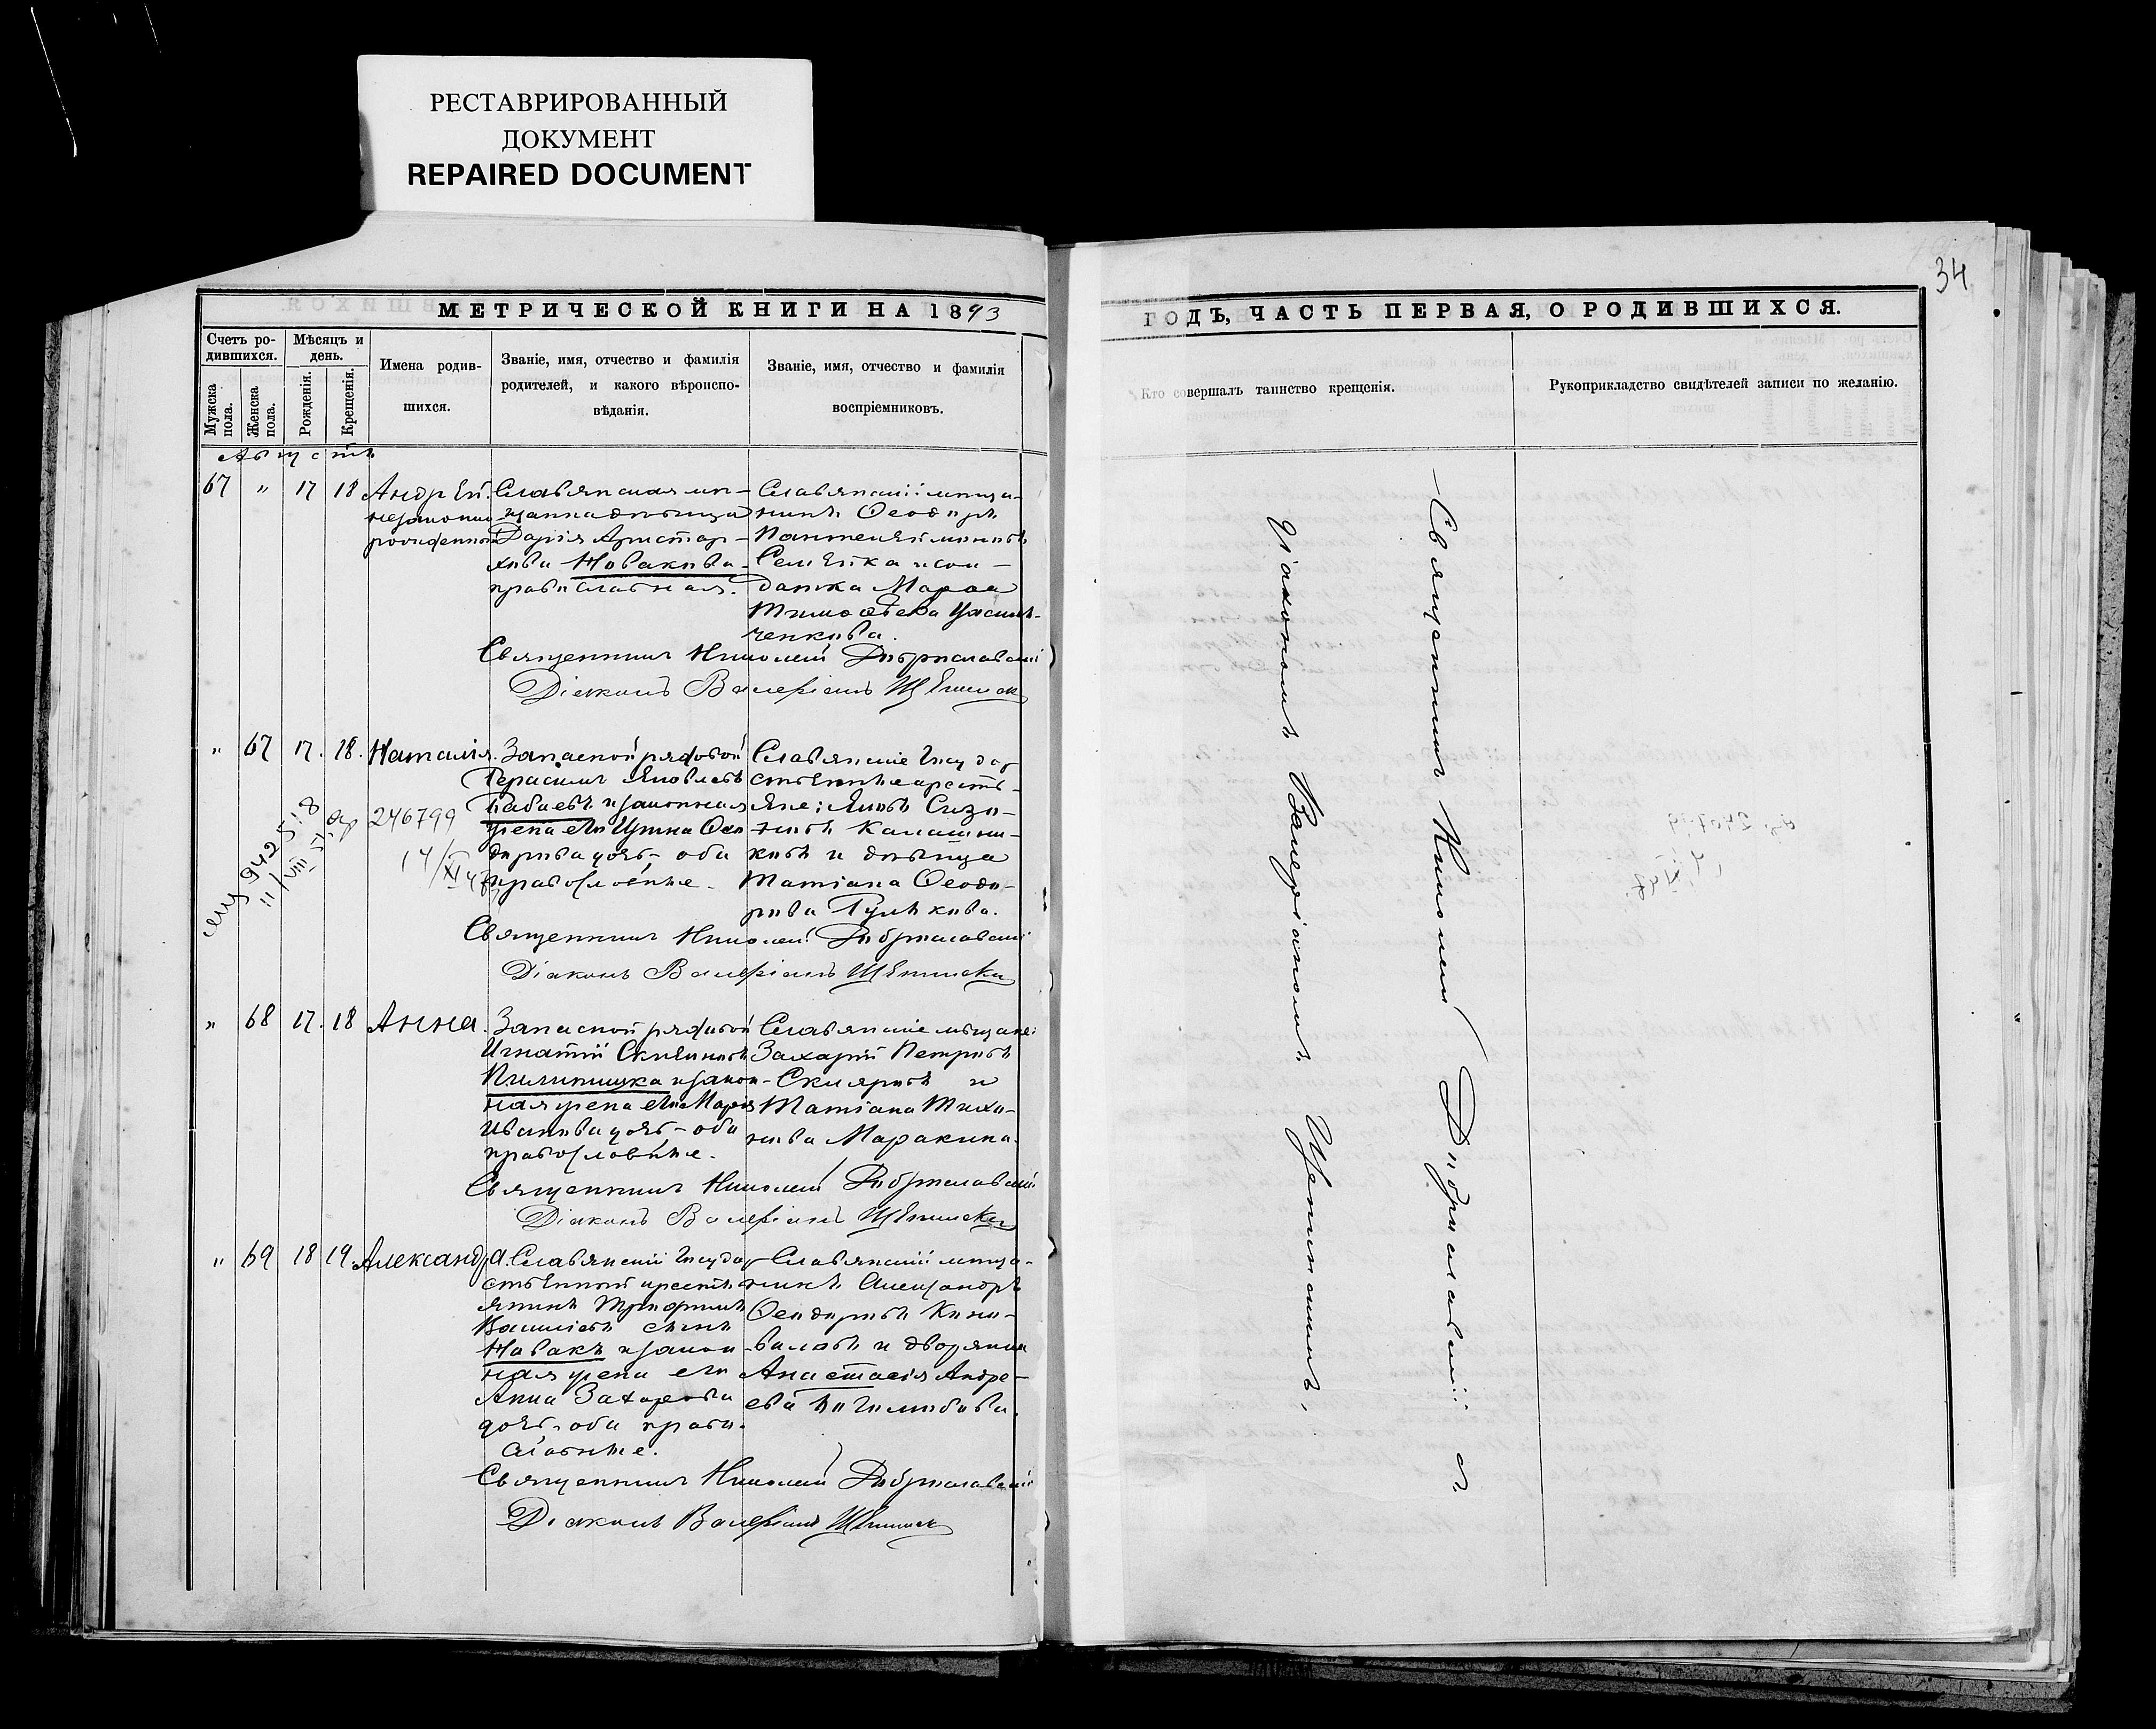 РЕСТАВРИРОВАННЫЙ
ДОКУМЕНТ
REPAIRED DOCUMENT
34
МЕТРИЧЕСКОЙ КНИГИ НА 1893
ГОДЪ, ЧАСТЬ ПЕРВАЯ, О РОДИВШИХСЯ.
Счетъ ро-
дившихся.
Мужска
пола.
Женска
пола.
Мѣсяцъ и
день.
Рожденія.
Крещенія.
Имена родив-
шихся.
Званіе, имя, отчество и фамилія
родителей, и какого вѣроиспо-
вѣданія.
Званіе, имя, отчество и фамилія
воспріемниковъ.
Кто совершалъ таинство крещенія.
Рукоприкладство свидѣтелей записи по желанію.
Августъ
67 " 17 18 Андрей.
незаконно
рожденный
Славянская мѣ-
щанка дѣвица
Дарія Аристар-
хова Новакова-
православная.
Славянскій мѣща-
нинъ Ѳеодоръ
Пантелеймоновъ
Семейка и сол-
датка Марѳа
Тимоѳеева
ченкова.
Священникъ Николай Доброславскій
Діаконъ Валеріанъ
" 67 17. 18. Наталія.
246799
Запасной рядовой
Герасимъ Яковлевъ
Бабаевъ и законная
жена его Ирина Ѳео
дорова дочь, оба
православные.
Славянскіе государ
ственные кресть-
яне: Яковъ Сизо-
новъ Калашни-
ковъ и дѣвица
Татіана Ѳеодо-
рова Гулькова.
Священникъ Николай Доброславскій
Діаконъ Валеріанъ
" 68 17. 18 Анна.
Запасной рядовой
Игнатій
Пилипишка и закон-
ная жена его Марія
Иванова дочь - оба
православные.
Славянскіе мѣщане:
Захарій Петровъ
Скляровъ и
Татіана Тихо-
нова Маракина.
Священникъ Николай Доброславскій
Діаконъ Валеріанъ
" 69 18 19. Александра.
Славянскій государ
ственный кресть
янинъ Трофимъ
Василіевъ сынъ
Новакъ и закон-
ная жена его
Анна Захарова
дочь, оба право-
славные.
Славянскій мѣща-
нинъ Александръ
Ѳеодоровъ Коно-
валовъ и дворянка
Анастасія Андре-
ева Боголюбова.
Священникъ Николай Доброславскій
Діаконъ Валеріанъ
Священникъ Николай Доброславскій съ
діакономъ Валеріаномъ